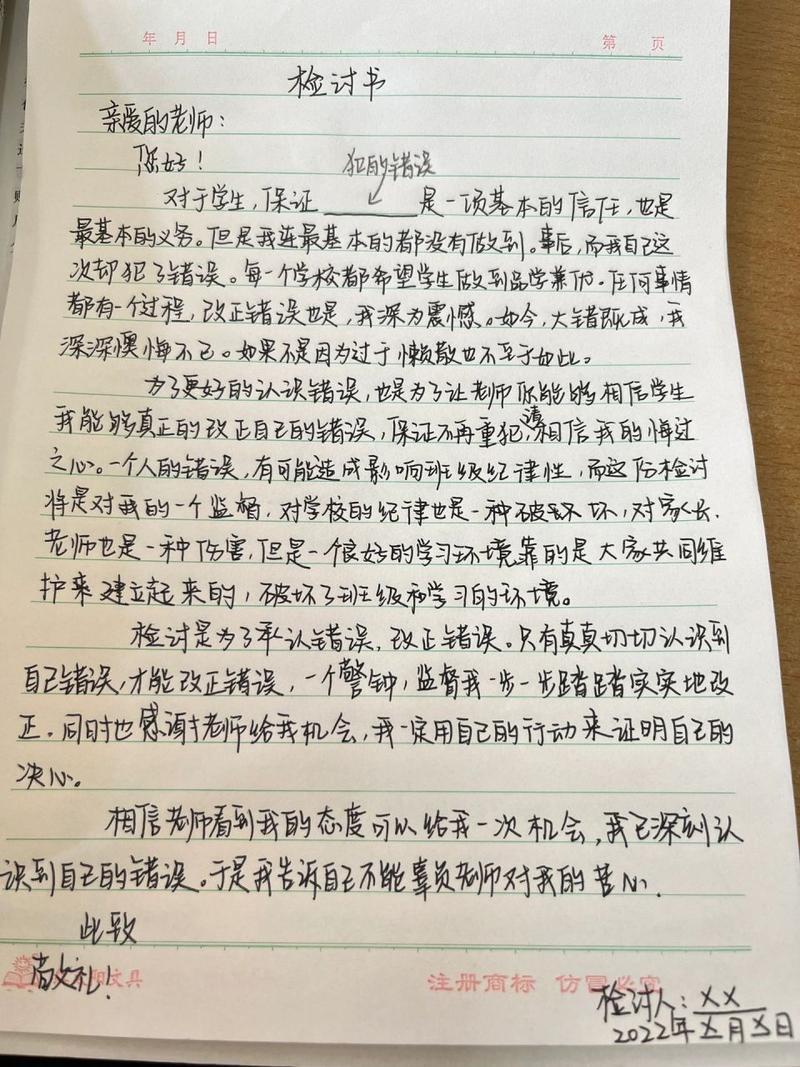 年 月 日
第 页
检讨书
亲爱的老师：
您好！
犯的错误
对于学生，保证 ______ 是一项基本的信任，也是
最基本的义务。但是我连最基本的都没有做到。事后，而我自己这
次却犯了错误。每一个学校都希望学生做到品学兼优。任何事情
都有一个过程，改正错误也是，我深为震憾。如今，大错既成，我
深深懊悔不已。如果不是因为过于懒散也不至于如此。
为了更好的认识错误，也是为了让老师你能够相信学生
我能够真正的改正自己的错误，保证不再重犯，请相信我的悔过
之心。一个人的错误，有可能造成影响班级纪律性，而这份检讨
将是对我的一个监督，对学校的纪律也是一种破坏，对家长、
老师也是一种伤害，但是一个良好的学习环境靠的是大家共同维
护来建立起来的，破坏了班级和学习的环境。
检讨是为了承认错误，改正错误。只有真真切切认识到
自己错误，才能改正错误，一个警钟，监督我一步一步踏踏实实地改
正。同时也感谢老师给我机会，我一定用自己的行动来证明自己的
决心。
相信老师看到我的态度可以给我一次机会，我已深刻认
识到自己的错误。于是我告诉自己不能辜负老师对我的苦心.
此致
文具
注册商标 仿冒必究
敬礼！
检讨人：XX
2022年X月X日